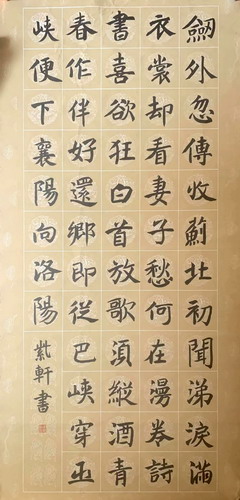 劔外忽傳收薊北初聞涕淚滿
衣裳却看妻子愁何在漫卷詩
書喜欲狂白首放歌須縱酒青
春作伴好還鄉即從巴峽穿巫
峽便下襄陽向洛陽
紫軒書